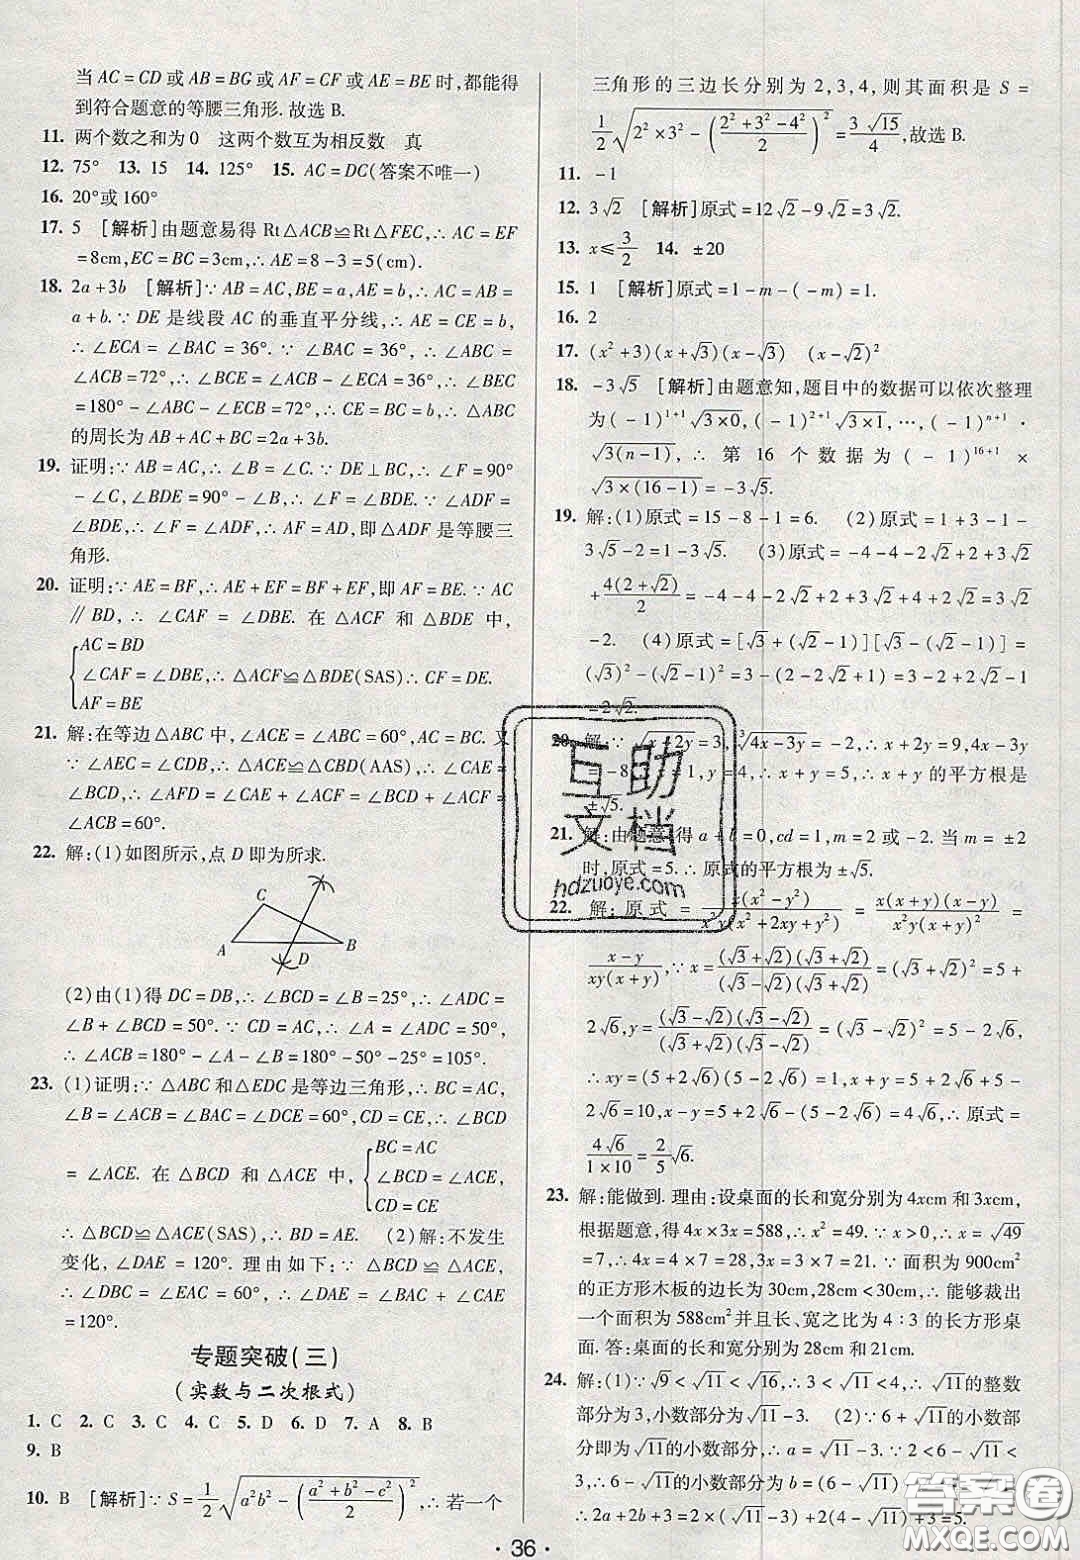 当 AC = CD 或 AB = BG 或 AF = CF 或 AE = BE 时,都能得
到符合题意的等腰三角形. 故选 B.
11. 两个数之和为 0　这两个数互为相反数　真
12. 75°　13. 15　14. 125°　15. AC = DC(答案不唯一)
16. 20°或 160°
17. 5　[解析]由题意易得 Rt△ACB≌Rt△FEC,∴ AC = EF
= 8cm,EC = BC = 3cm,∴ AE = 8 - 3 = 5(cm).
18. 2a + 3b　[解析]∵ AB = AC,BE = a,AE = b,∴ AC = AB =
a + b. ∵ DE 是线段 AC 的垂直平分线,∴ AE = CE = b,
∴ ∠ECA = ∠BAC = 36°. ∵ ∠BAC = 36°,∴ ∠ABC =
∠ACB = 72°,∴ ∠BCE = ∠ACB - ∠ECA = 36°,∴ ∠BEC
= 180° - ∠ABC - ∠ECB = 72°,∴ CE = BC = b,∴ △ABC
的周长为 AB + AC + BC = 2a + 3b.
19. 证明:∵ AB = AC,∴ ∠B = ∠C. ∵ DE⊥BC,∴ ∠F = 90°
- ∠C,∠BDE = 90° - ∠B,∴ ∠F = ∠BDE. ∵ ∠ADF =
∠BDE,∴ ∠F = ∠ADF,∴ AF = AD,即△ADF 是等腰三
角形.
20. 证明:∵ AE = BF,∴ AE + EF = BF + EF,即 AF = BE. ∵ AC
∥ BD,∴ ∠CAF = ∠DBE. 在 △ACF 和 △BDE 中,
{AC = BD
∠CAF = ∠DBE,∴ △ACF≌△BDE(SAS)∴ CF = DE.
AF = BE
21. 解:在等边△ABC 中,∠ACE = ∠ABC = 60°,AC = BC. 又
∵ ∠AEC = ∠CDB,∴ △ACE≌△CBD(AAS),∴ ∠CAE =
∠BCD,∴ ∠AFD = ∠CAE + ∠ACF = ∠BCD + ∠ACF =
∠ACB = 60°.
22. 解:(1)如图所示,点 D 即为所求.
C
A D B
(2)由(1)得 DC = DB,∴ ∠BCD = ∠B = 25°,∴ ∠ADC =
∠B + ∠BCD = 50°. ∵ CD = AC,∴ ∠A = ∠ADC = 50°,
∴ ∠ACB = 180° - ∠A - ∠B = 180° - 50° - 25° = 105°.
23. (1)证明:∵ △ABC 和△EDC 是等边三角形,∴ BC = AC,
∠B = ∠ACB = ∠BAC = ∠DCE = 60°,CD = CE,∴ ∠BCD
= ∠ACE. 在 △BCD 和 △ACE 中, {BC = AC
∠BCD = ∠ACE,
CD = CE
∴ △BCD≌△ACE(SAS),∴ BD = AE. (2)解:不发生
变化,∠DAE = 120°. 理由如下:∵ △BCD ≌ △ACE,
∴ ∠DBC = ∠EAC = 60°,∴ ∠DAE = ∠BAC + ∠CAE
= 120°.
专题突破(三)
(实数与二次根式)
1. C　2. C　3. C　4. C　5. D　6. D　7. A　8. B
9. B
10. B　[解析]∵ S = 1/2 √(a²b² - ((a² + b² - c²)/2)²),∴ 若一个
三角形的三边长分别为 2,3,4,则其面积是 S =
1/2 √(2² × 3² - ((2² + 3² - 4²)/2)²) = 3√15/4,故选 B.
11. -1
12. 3√2　[解析]原式 = 12√2 - 9√2 = 3√2.
13. x ≤ 3/2　14. ±20
15. 1　[解析]原式 = 1 - m - ( - m) = 1.
16. 2
17. (x² + 3)(x + √3)(x - √3)　(x - √2)²
18. -3√5　[解析]由题意知,题目中的数据可以依次整理
为( - 1)¹⁺¹√(3×0),( - 1)²⁺¹√(3×1),…,( - 1)ⁿ⁺¹ ·
√(3(n-1)),∴ 第 16 个数据为( - 1)¹⁶⁺¹ ×
√(3×(16-1)) = -3√5.
19. 解:(1)原式 = 15 - 8 - 1 = 6. (2)原式 = 1 + 3 - 1 -
3√5 - 2 = 1 - 3√5. (3)原式 = -4 - 4 - 2√2 + 2 + 3√2
+ 4(2 + √2)/2 = -4 - 4 - 2√2 + 2 + 3√2 + 4 + 2√2 = 3√2
- 2. (4)原式 = [√3 + (√2 - 1)][√3 - (√2 - 1)] =
(√3)² - (√2 - 1)² = 3 - (2 - 2√2 + 1) = 3 - 2 + 2√2 - 1
= 2√2.
20. 解:∵ √(x + 2y) = 3,∛(4x - 3y) = -2,∴ x + 2y = 9,4x - 3y
= -8,∴ x = 1,y = 4,∴ x + y = 5,∴ x + y 的平方根是
±√5.
21. 解:由题意得 a + b = 0,cd = 1,m = 2 或 -2. 当 m = ±2
时,原式 = 5. ∴ 原式的平方根为 ±√5.
22. 解:原式 = x(x² - y²)/(x²y(x² + 2xy + y²)) = x(x + y)(x - y)/(x²y(x + y)²) =
(x - y)/(xy(x + y)),∵ x = (√3 + √2)(√3 + √2)/((√3 - √2)(√3 + √2)) = (√3 + √2)² = 5 +
2√6,y = (√3 - √2)(√3 - √2)/((√3 + √2)(√3 - √2)) = (√3 - √2)² = 5 - 2√6,
∴ xy = (5 + 2√6)(5 - 2√6) = 1,x + y = 5 + 2√6 + 5 -
2√6 = 10,x - y = 5 + 2√6 - (5 - 2√6) = 4√6,∴ 原式 =
4√6/(1×10) = 2/5 √6.
23. 解:能做到. 理由:设桌面的长和宽分别为 4xcm 和 3xcm,
根据题意,得 4x × 3x = 588,∴ x² = 49. ∵ x > 0,∴ x = √49
= 7,∴ 4x = 4 × 7 = 28,3x = 3 × 7 = 21. ∵ 面积为 900cm²
的正方形木板的边长为 30cm,28cm < 30cm,∴ 能够裁出
一个面积为 588cm² 并且长、宽之比为 4 : 3 的长方形桌
面. 答:桌面的长和宽分别为 28cm 和 21cm.
24. 解:(1)∵ √9 < √11 < √16,∴ 3 < √11 < 4,∴ √11的整数
部分为 3,小数部分为√11 - 3. (2)∵ 6 + √11的小数
部分即为√11的小数部分,∴ a = √11 - 3. ∵ 2 < 6 - √11 <
3,∴ 6 - √11的小数部分为 b = (6 - √11) - 2 = 4 - √11,
∴ 2a + 2b + 3 = 2(√11 - 3) + 2(4 - √11) + 3 = 5.
· 36 ·
互助
文档
hdzuoye.com
答案圈
MXQE.COM